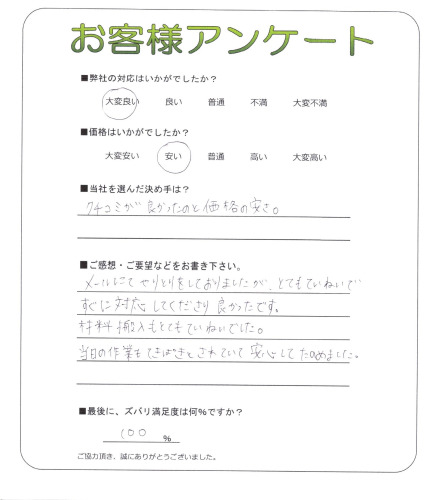 お客様アンケート
■弊社の対応はいかがでしたか?
大変良い 良い 普通 不満 大変不満
■価格はいかがでしたか?
大変安い 安い 普通 高い 大変高い
■当社を選んだ決め手は?
クチコミが良かったのと価格の安さ。
■ご感想・ご要望などをお書き下さい。
メールにてやりとりをしておりましたが、とてもていねいで
すぐに対応してくださり良かったです。
材料搬入もとてもていねいでした。
当日の作業もてきぱきとされていて安心してたのめました。
■最後に、ズバリ満足度は何%ですか?
100 %
ご協力頂き、誠にありがとうございました。